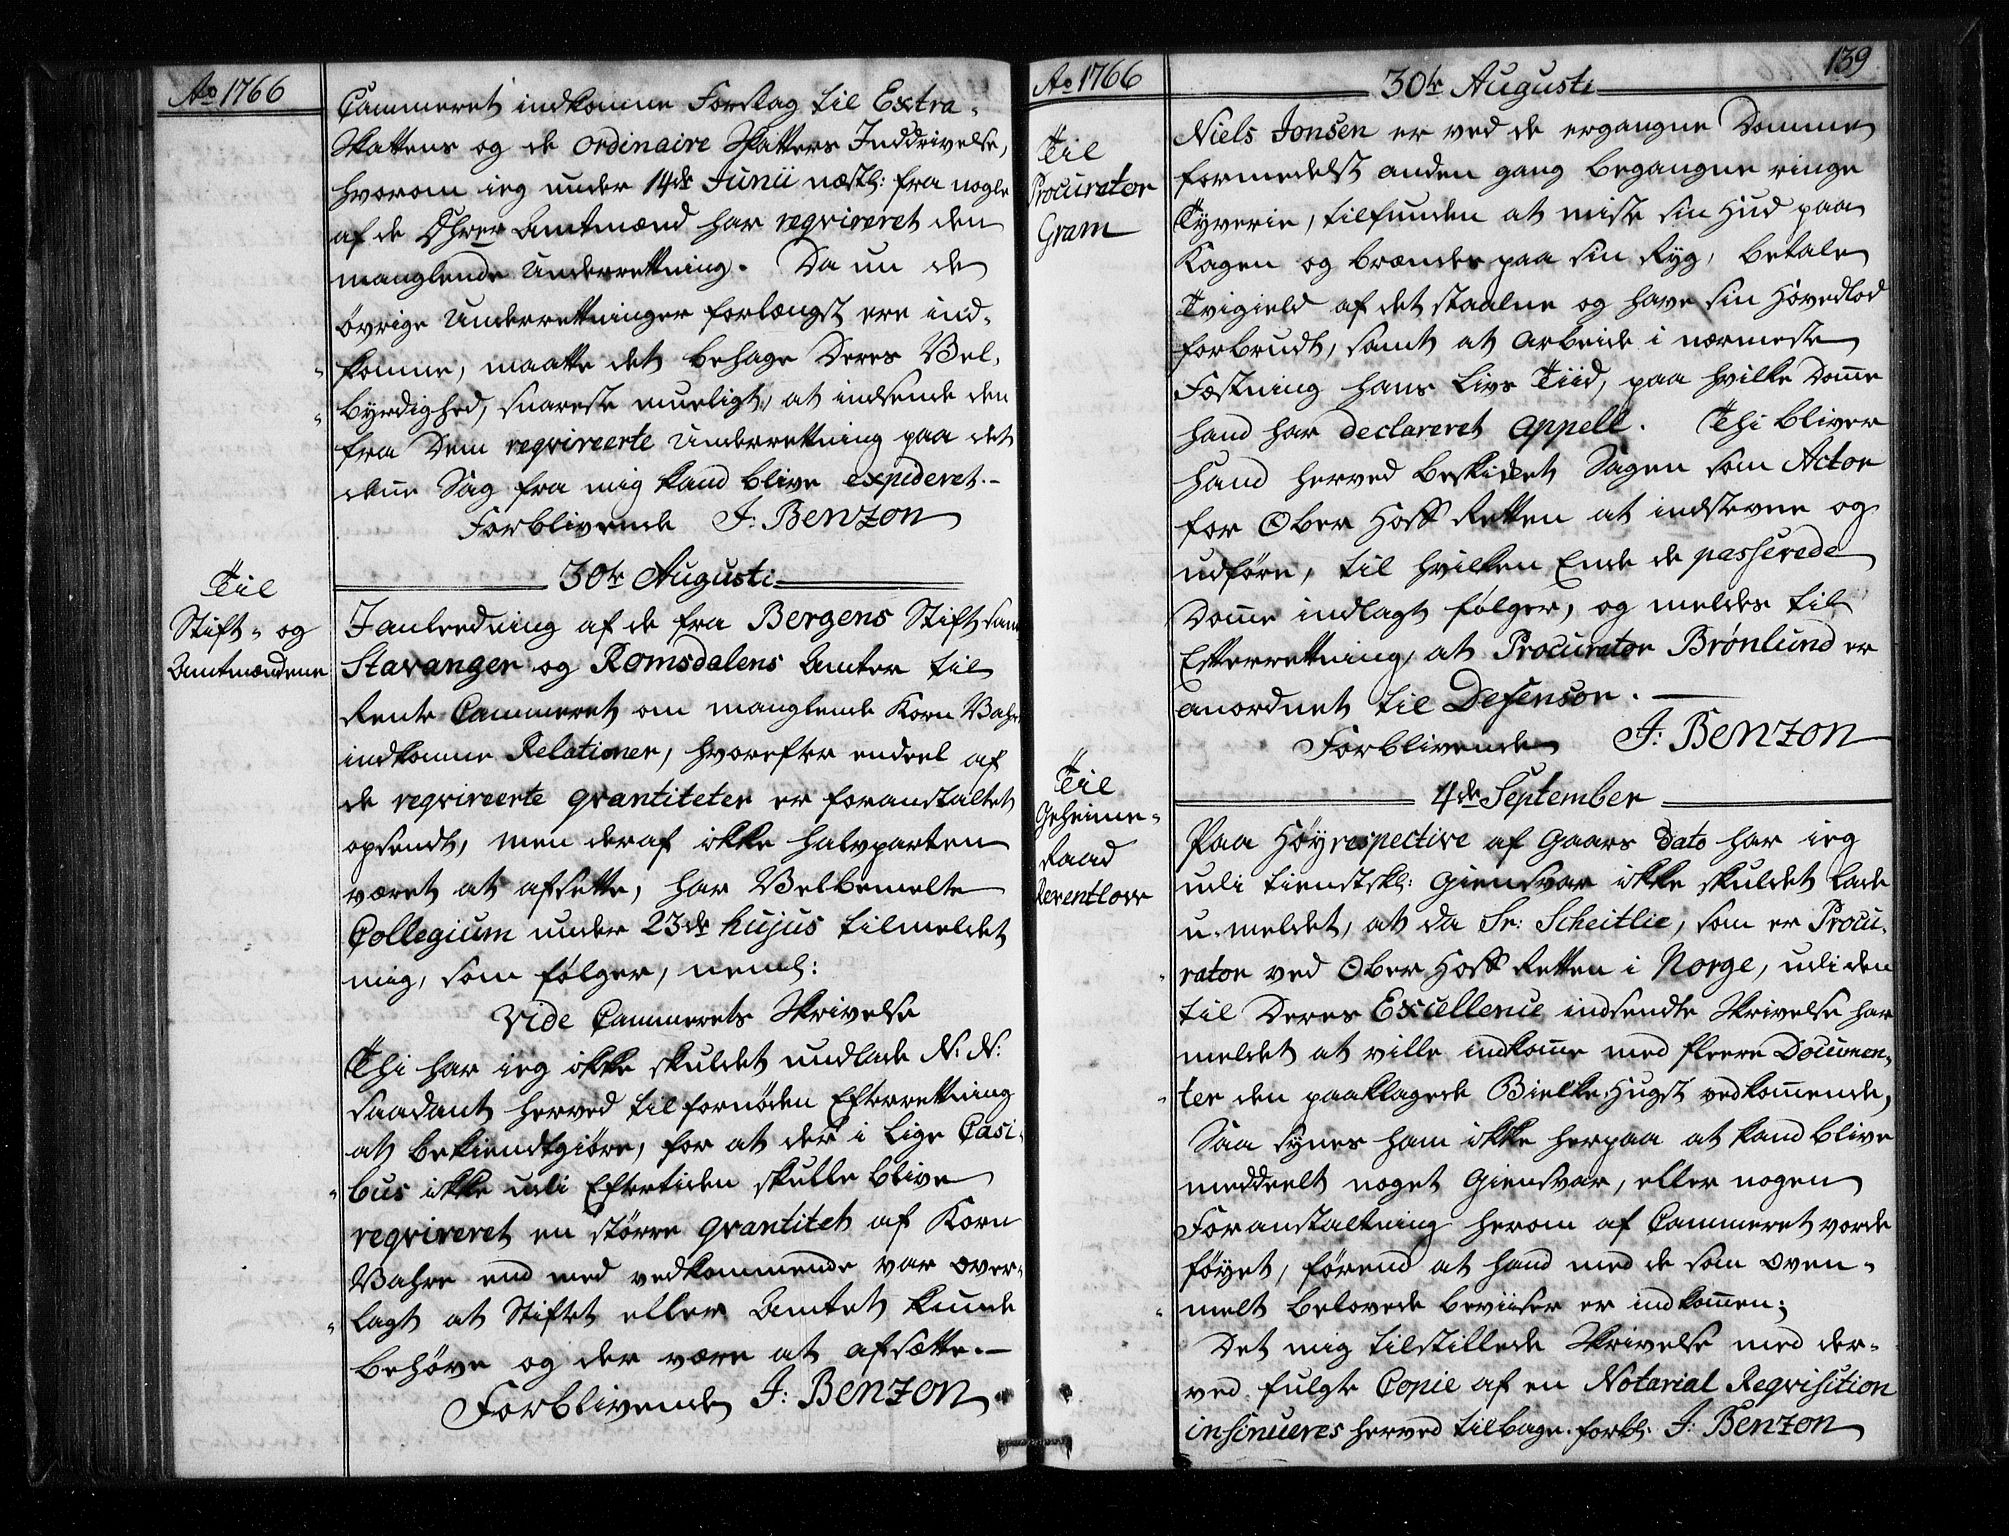 Ao 1766
Cammeret indkomne Forslag til Extra-
Skattens og de ordinaire Skatters Inddrivelse,
hvorom ieg under 14de Junii næstl: fra nogle
af de Hrer Amtmænd har reqvireret den
manglende Underretning. Da nu de
øvrige Underretninger forlængst ere ind-
komne, maatte det behage Deres Vel-
byrdighed, snareste mueligt, at indsende den
fra Dem reqvireerte Underretning paa det
denne Sag fra mig kand blive expederet.-
Forblivende J: Benzon
30te Augusti
Til
Stift- og
Amtmændene
I anleedning af de fra Bergens Stift samt
Stavanger og Romsdalens Amter til
Rente Cammeret om manglende Korn Vahre
indkomne Relationer, hvorefter endeel af
de reqvireerte qvantiteter er foranstaltet
opsendt, men deraf ikke halvparten
været at afsette, har Velbemelte
Collegium under 23de hujus tilmeldet
mig, som følger, neml:
Vide Cammerets Skrivelse
Thi har ieg ikke skuldet undlade N: N:
saadant herved til fornøden Efterretning
at bekiendtgiøre, for at der i lige Casi-
bus ikke udi Eftertiden skulle blive
reqvireret en større qvantitet af Korn
Vahre end med vedkommende var over-
lagt at Stiftet eller Amtet kunde
behøve og der være at afsætte.-
Forblivende J: Benzon
Ao 1766
139
30te Augusti
Til
Procurator
Gram
Niels Jonsen er ved de ergangne Domme
formedelst anden gang begangne ringe
Tyverie, tilfunden at miste sin Hud paa
Kagen og brændes paa sin Ryg, betale
Tvigield af det staalne og have sin Hovedlod
forbrudt, samt at arbeide i nærmeste
Fæstning hans Livs Tiid, paa hvilke Domme
hand har declareret Appell. Thi bliver
hand herved beskikket Sagen som Actor
for Ober Hoff Retten at indstevne og
udføre, til hvilken Ende de passerede
Domme indlagt følger, og meldes til
Efterretning, at Procurator Brønlund er
anordnet til Defensor.
Forblivende J: Benzon
4de September
Til
Geheime-
Raad
Reventlow
Paa Høyrespective af Gaars Dato har ieg
udi tienstskl: Giensvar ikke skuldet lade
u-meldet, at da Sr: Scheitlie, som er Procu-
rator ved Ober Hoff Retten i Norge, udi den
til Deres Excellence indsendte Skrivelse har
meldet at ville indkomme med fleere Documen-
ter den paaklagede Bielke Hugst vedkommende,
Saa synes ham ikke herpaa at kand blive
meddeelt noget Giensvar, eller nogen
Foranstaltning herom af Cammeret vorde
føyet, førend at hand med de som oven-
melt belovede beviiser er indkommen;
Det mig tilstillede Skrivelse med der-
ved fulgte Copie af en Notarial Reqvisition
insinueres herved tilbage. forbl: J: Benzon